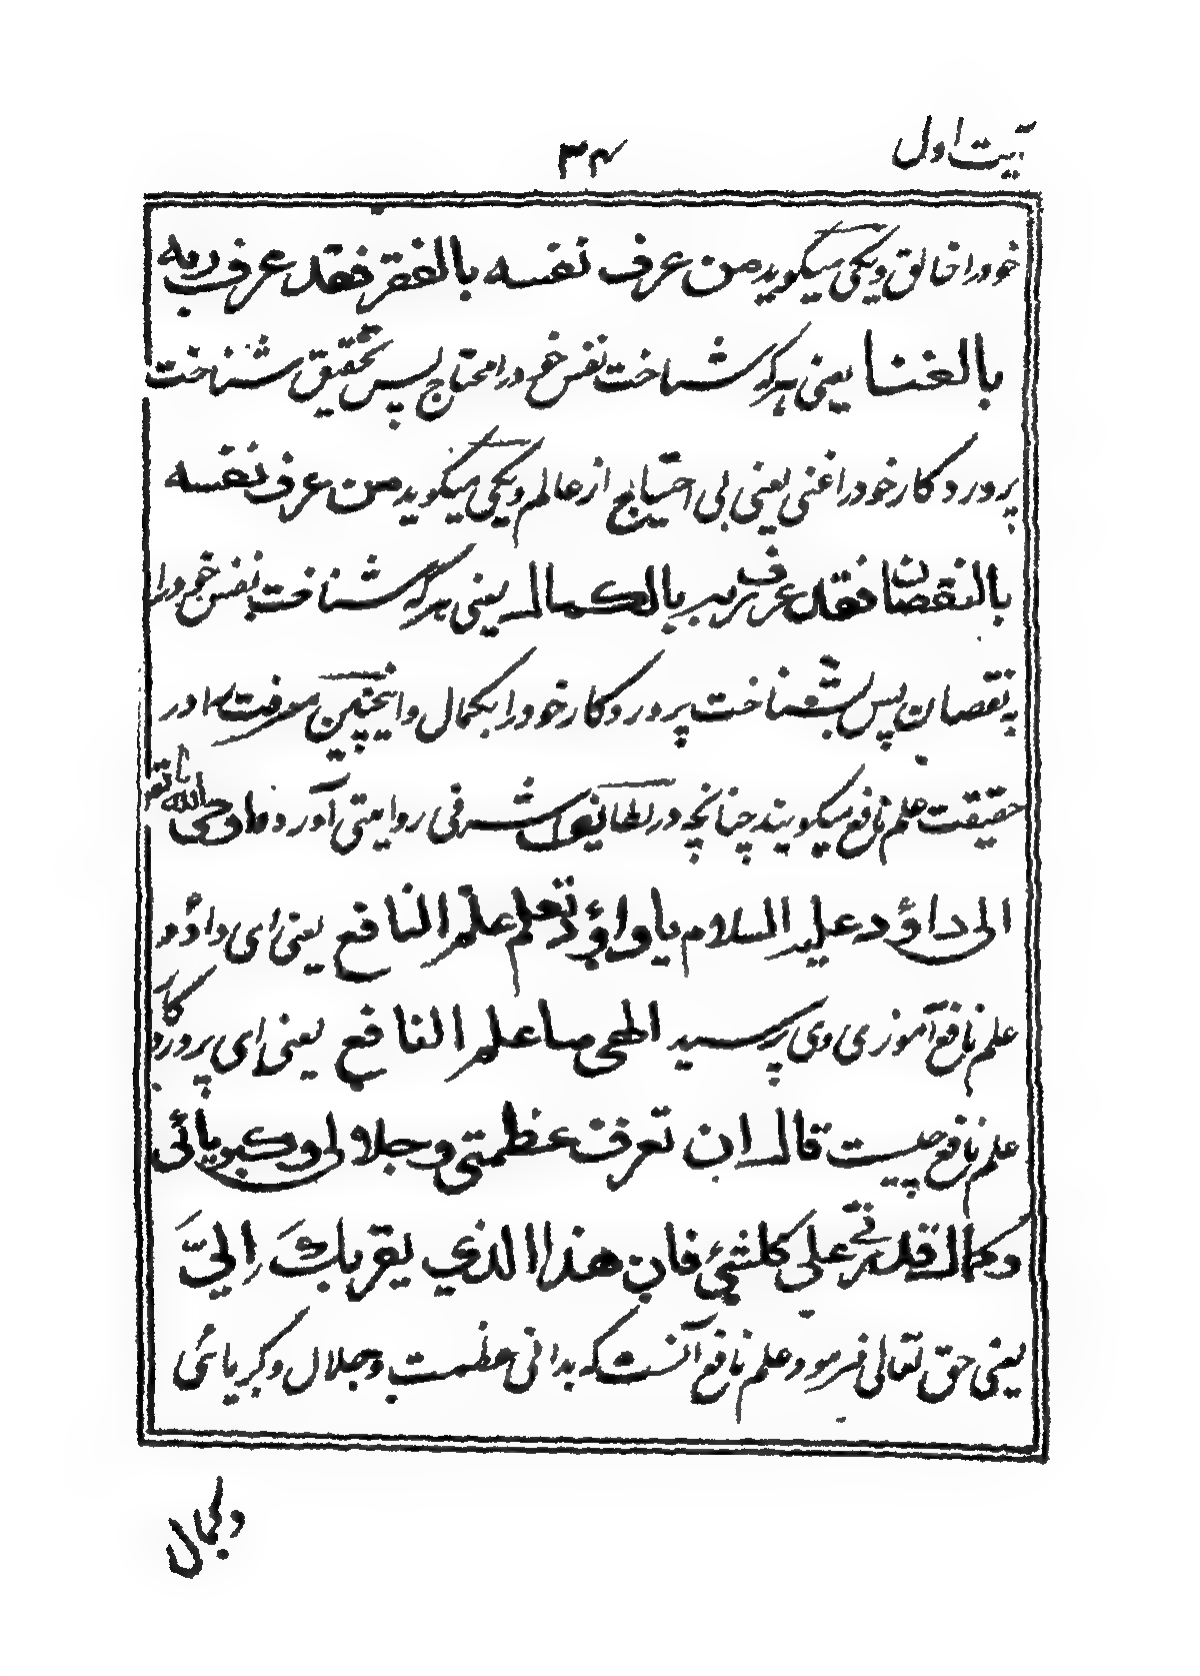 آیت اول
۳۴
خود را خالق ویکی میگوید من عرف نفسه بالفقر فقد عرف ربه
بالغنا یعنی هرکه شناخت نفس خود را محتاج پس تحقیق شناخت
پروردکار خود را غنی یعنی بی احتیاج از عالم ویکی میگوید من عرف نفسه
بالنقصان فقد عرف ربه بالکمال یعنی هرکه شناخت نفس خود را
به نقصان پس بشناخت پروردکار خود را بکمال واینچنین معرفت را در
حقیقت علم نافع میگویند چنانچه در لطائف شرفی روایتی آورده اوحی الله تعالی
الی داؤد علیه السلام یا داؤد تعلم علم النافع یعنی ای داؤد
علم نافع آموزی وی پرسید الهی ما علم النافع یعنی ای پروردکار
علم نافع چیست قال ان تعرف عظمتی وجلالی وکبریائی
وکمال قدرتی علی کل شیء فان هذا الذي یقربك اِليَّ
یعنی حق تعالی فرمود علم نافع آنست که بدانی عظمت وجلال وکبریائی
وکمال